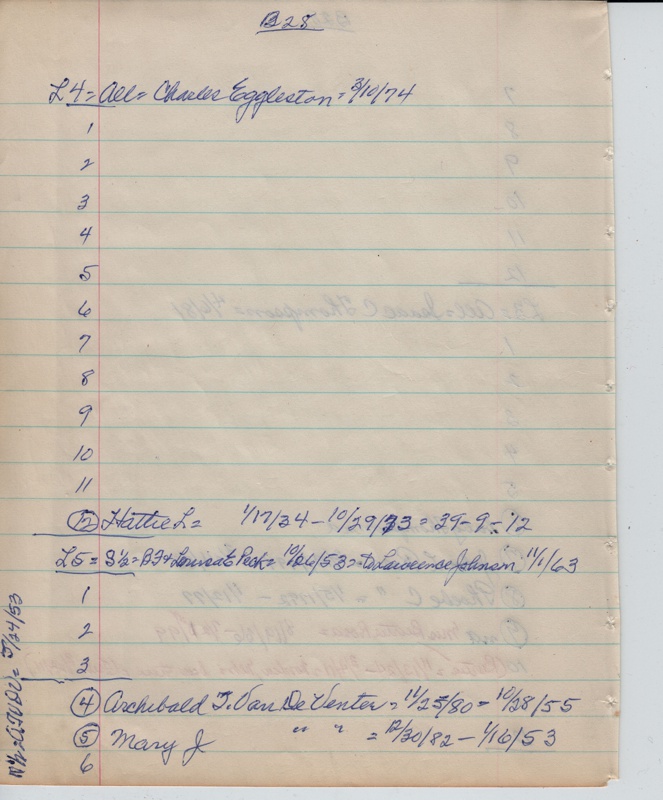 B28
L4 = All = Charles Eggleston = 3/10/74
1
2
3
4
5
6
7
8
9
10
11
(12) Hattie L = 1/17/34 - 10/29/73 = 39-9-12
L5 = S 1/2 = B F & Lourisa E Peck = 10/26/53 = to Lawrence Johnson 11/1/63
1
2
3
(4) Archibald T. Van De Venter = 11/25/80 = 10/28/55
(5) Mary J " " = 12/30/82 - 1/16/53
6
N 1/2 = ATVDV = 5/24/53